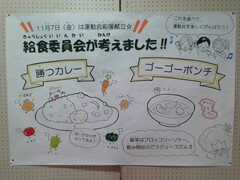 11月7日(金)は運動会応援献立☆
きゅうしょくいいんかい かんが
給食委員会が考えました!!
これを食べて、
運動会を楽しくがんばろう!
勝つカレー
ゴーゴーポンチ
副菜はブロッコリーソテー、
飲み物はぶどうジュースだよ♬